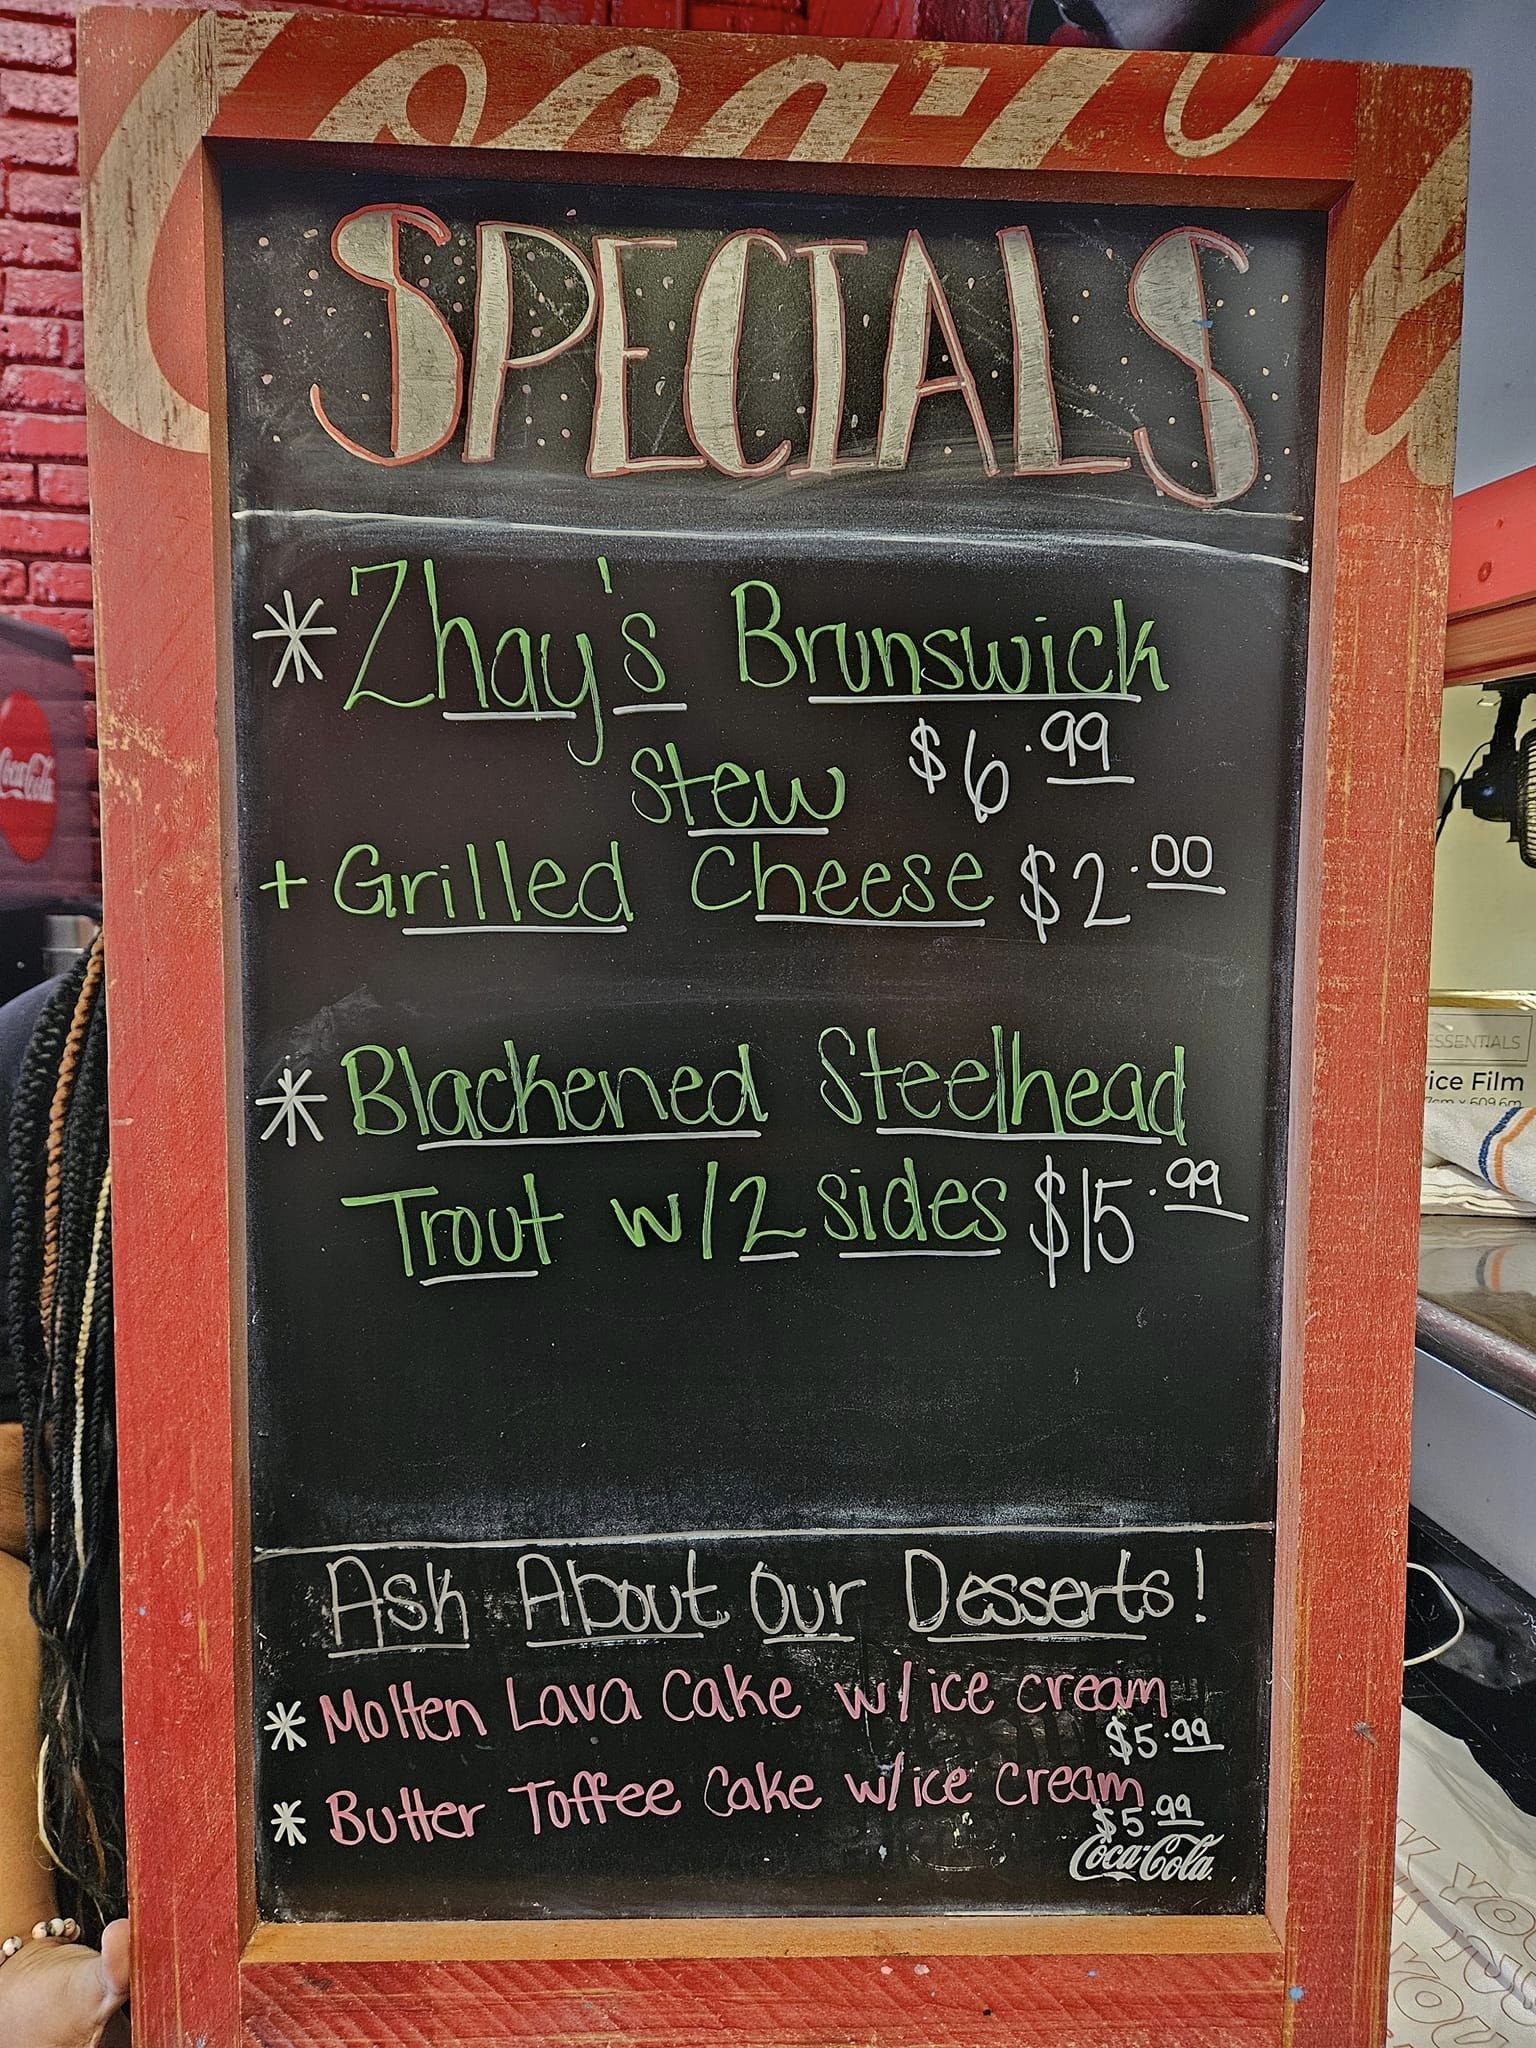 Coca-Cola
SPECIALS
* Zhay's Brunswick
stew $6.99
+ Grilled Cheese $2.00
* Blackened Steelhead
Trout w/2 sides $15.99
Ask About Our Desserts!
* Molten Lava Cake w/ice cream
$5.99
* Butter Toffee Cake w/ice cream
$5.99
Coca-Cola
Coca-Cola
ESSENTIALS
Film